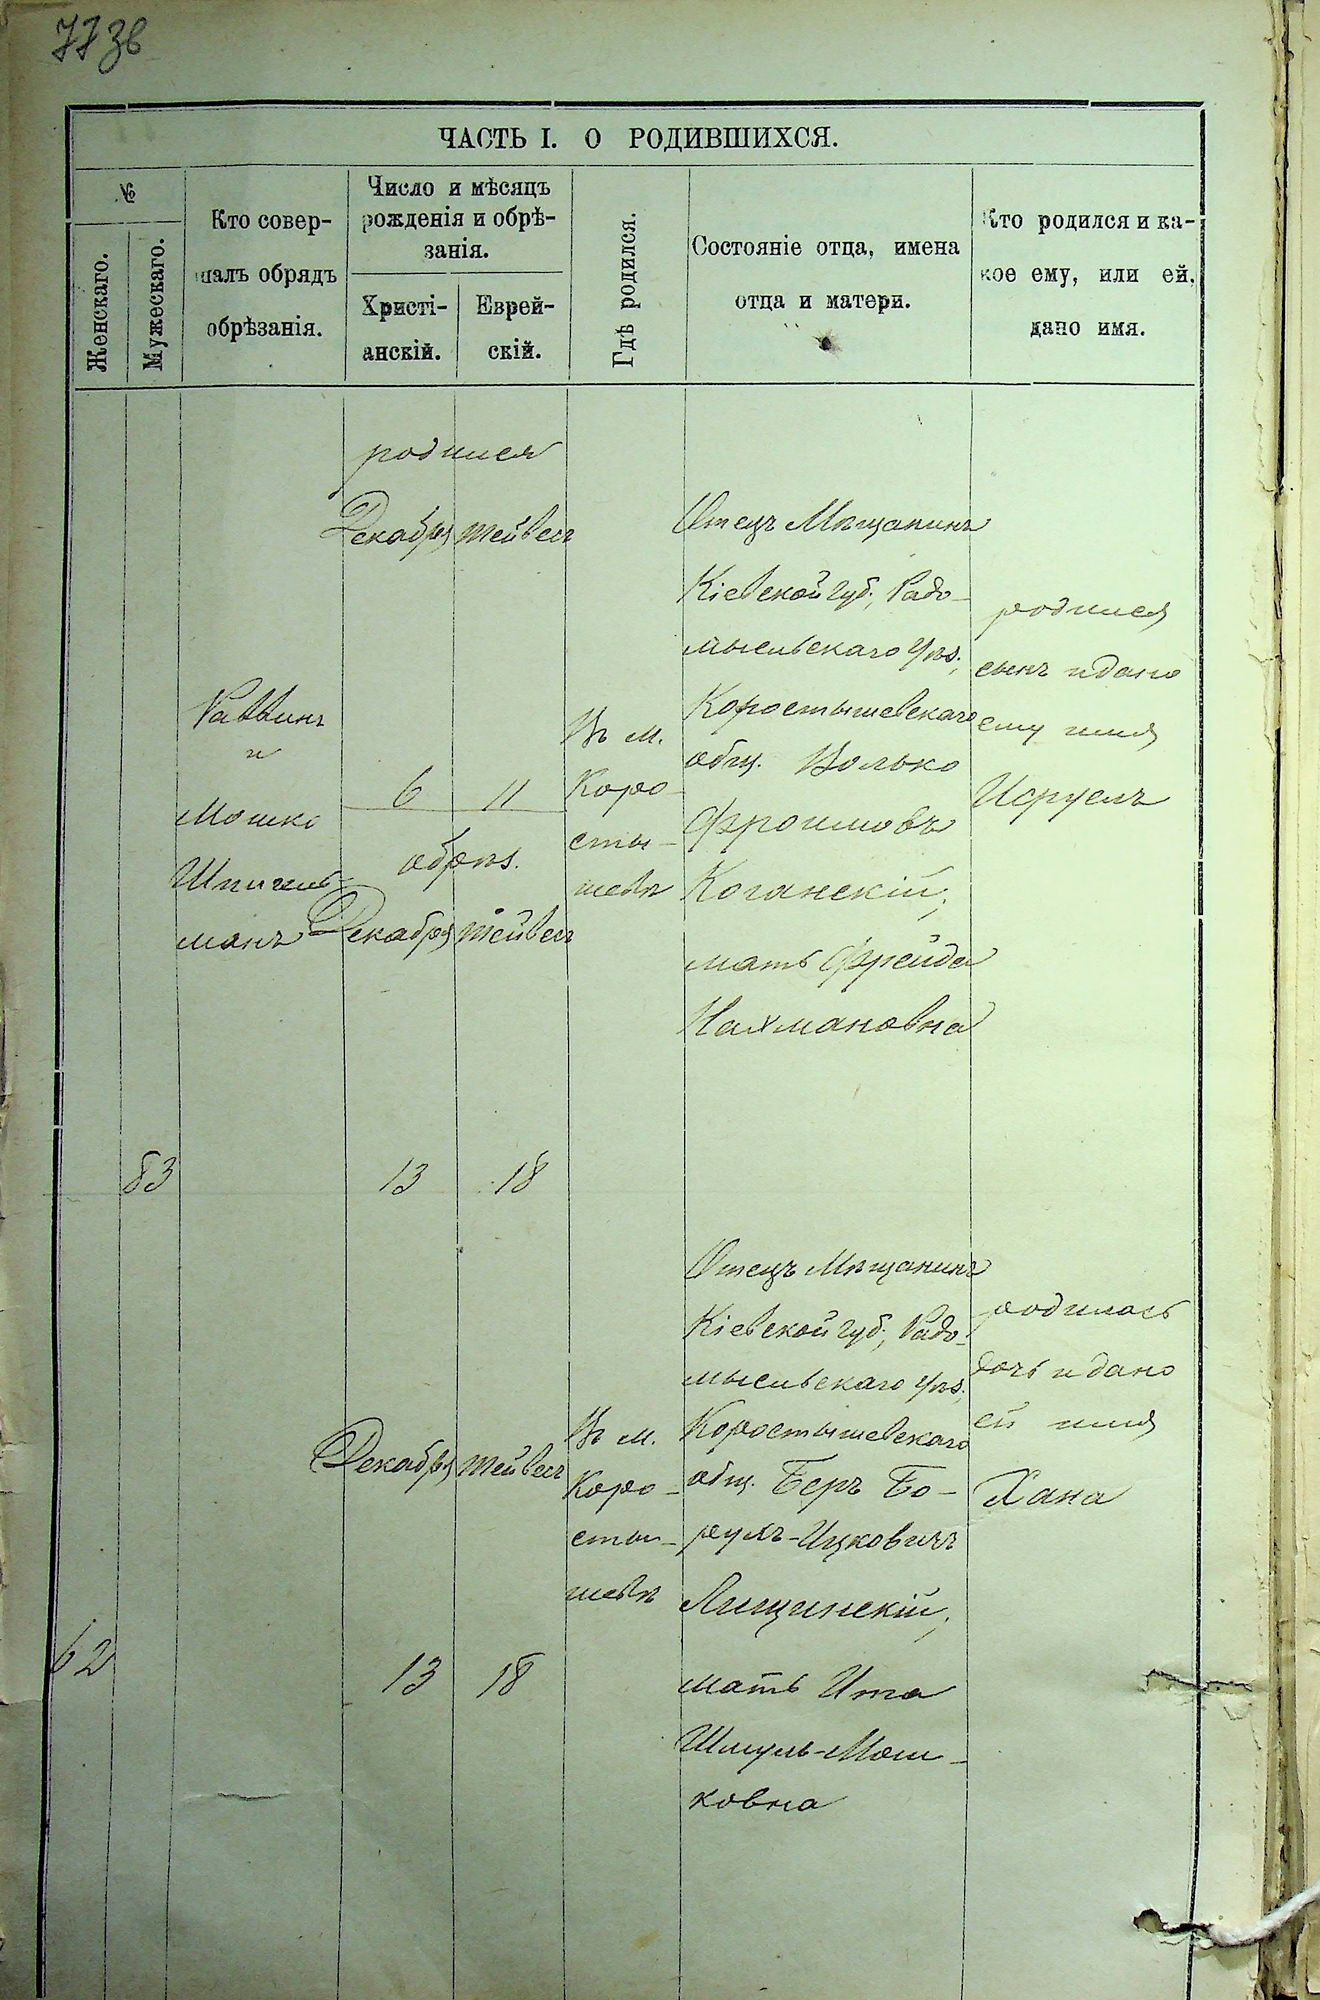 77 зв
ЧАСТЬ I. О РОДИВШИХСЯ.
№
Женскаго.
Мужескаго.
Кто совер-
шалъ обрядъ
обрѣзанія.
Число и мѣсяцъ
рожденія и обрѣ-
занія.
Христі-
анскій.
Еврей-
скій.
Гдѣ родился.
Состояніе отца, имена
отца и матери.
Кто родился и ка-
кое ему, или ей,
дано имя.
83
Раввинъ
и
Мошко
Шпигель-
манъ
родился
Декабря Тейвесъ
6 11
обрѣз.
Декабря Тейвесъ
13 18
Въ м.
Коро-
сты-
шевѣ
Отецъ Мѣщанинъ
Кіевской губ., Радо-
мысльскаго уѣз.,
Коростышевскаго
общ. Волько
Фроимовъ
Коганскій,
мать Фрейда
Нахмановна
родился
сынъ и дано
ему имя
Исруель
62
Декабря Тейвесъ
13 18
Въ м.
Коро-
сты-
шевѣ
Отецъ Мѣщанинъ
Кіевской губ., Радо-
мысльскаго уѣз.,
Коростышевскаго
общ. Беръ Бо-
рухъ-Ицковичъ
Лищинскій,
мать Ита
Шмуль-Мош-
ковна
родилась
дочь и дано
ей имя
Хана